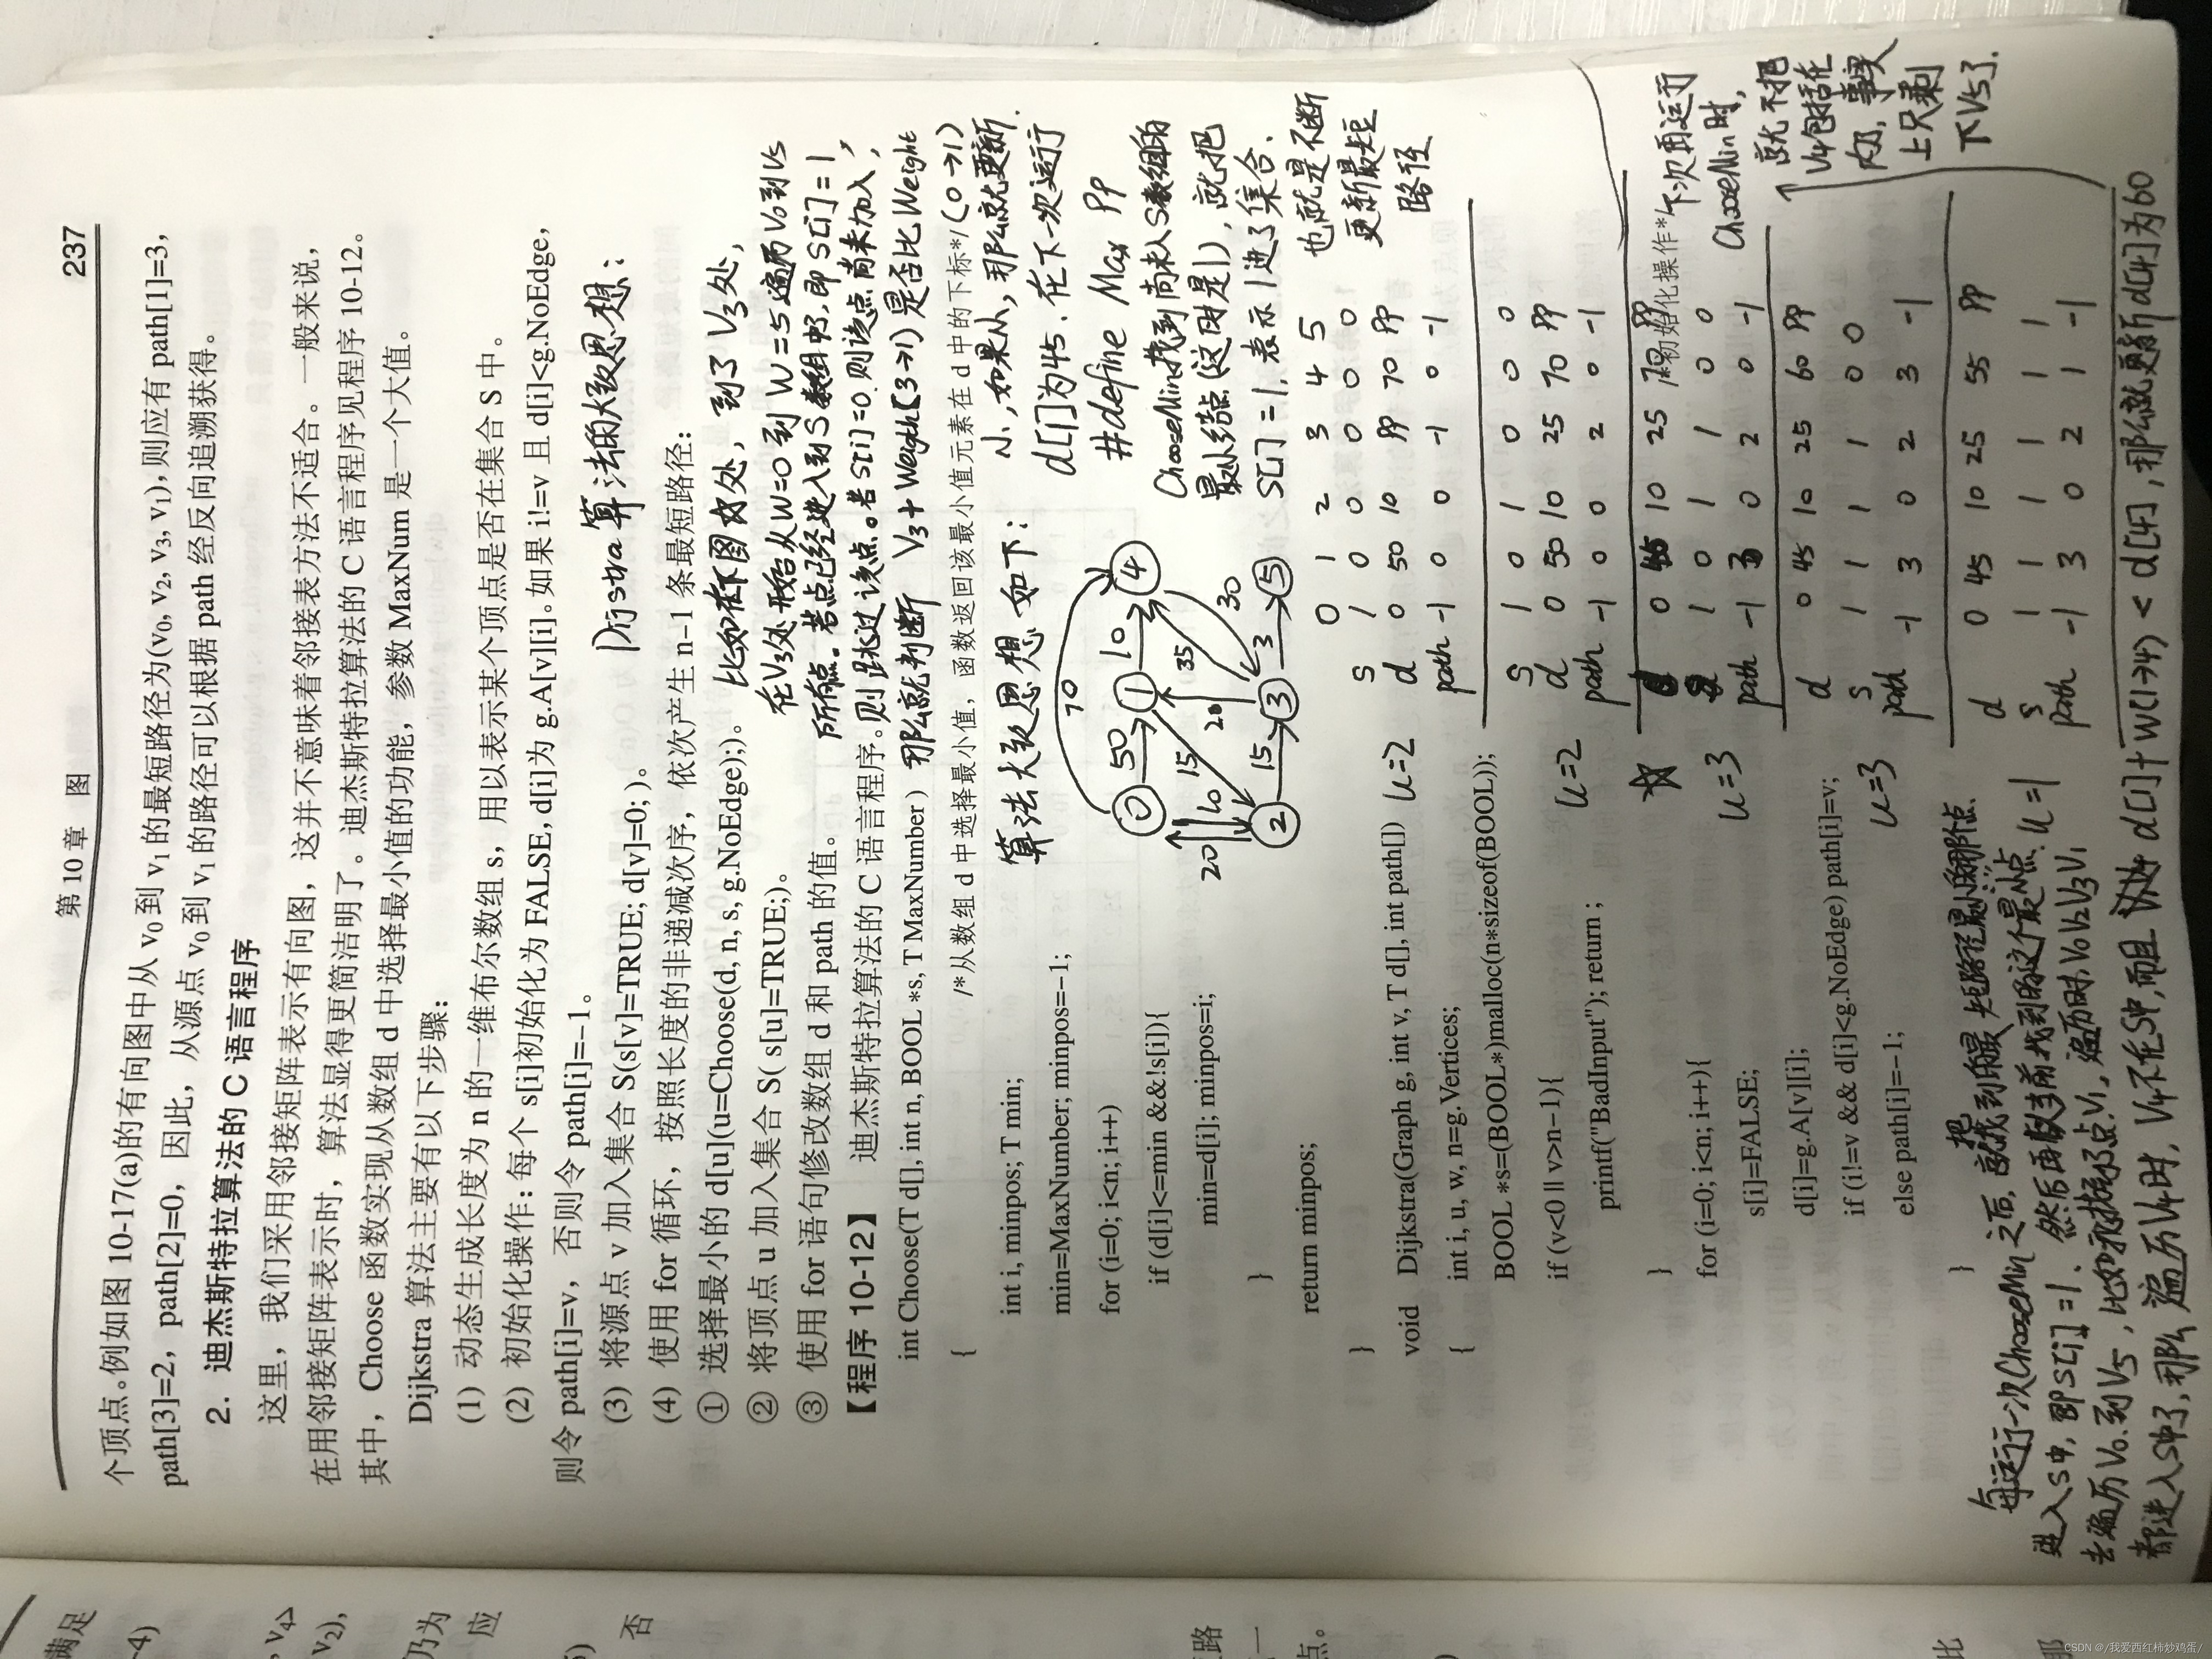 第 10 章 图 237
个顶点。例如图 10-17(a)的有向图中从 v₀ 到 v₁ 的最短路径为(v₀, v₂, v₃, v₁), 则应有 path[1]=3,
path[3]=2, path[2]=0, 因此, 从源点 v₀ 到 v₁ 的路径可以根据 path 经反向追溯获得。
2. 迪杰斯特拉算法的 C 语言程序
这里, 我们采用邻接矩阵表示有向图, 这并不意味着邻接表方法不适合。一般来说,
在用邻接矩阵表示时, 算法显得更简洁明了。迪杰斯特拉算法的 C 语言程序见程序 10-12。
其中, Choose 函数实现从数组 d 中选择最小值的功能, 参数 MaxNum 是一个大值。
Dijkstra 算法主要有以下步骤:
(1) 动态生成长度为 n 的一维布尔数组 s, 用以表示某个顶点是否在集合 S 中。
(2) 初始化操作: 每个 s[i]初始化为 FALSE, d[i]为 g.A[v][i]。如果 i!=v 且 d[i]<g.NoEdge,
则令 path[i]=v, 否则令 path[i]=−1。
(3) 将源点 v 加入集合 S(s[v]=TRUE; d[v]=0; )。
(4) 使用 for 循环, 按照长度的非递减次序, 依次产生 n−1 条最短路径:
① 选择最小的 d[u](u=Choose(d, n, s, g.NoEdge);)。
② 将顶点 u 加入集合 S( s[u]=TRUE;)。
③ 使用 for 语句修改数组 d 和 path 的值。
【程序 10-12】 迪杰斯特拉算法的 C 语言程序。
int Choose(T d[], int n, BOOL *s, T MaxNumber )
{ /*从数组 d 中选择最小值, 函数返回该最小值元素在 d 中的下标*/
int i, minpos; T min;
min=MaxNumber; minpos=−1;
for (i=0; i<n; i++)
if (d[i]<=min &&!s[i]){
min=d[i]; minpos=i;
}
return minpos;
}
void Dijkstra(Graph g, int v, T d[], int path[])
{
int i, u, w, n=g.Vertices;
BOOL *s=(BOOL*)malloc(n*sizeof(BOOL));
if (v<0 || v>n−1){
printf("BadInput"); return ;
}
for (i=0; i<n; i++){ 初始化操作*/
s[i]=FALSE;
d[i]=g.A[v][i];
if (i!=v && d[i]<g.NoEdge) path[i]=v;
else path[i]=−1;
}
Dijstra算法的大致思想:
比如在下图 处, 到了 V₃处,
在V₃处开始从W=0到W=5遍历V₀到V₅
所有点。若点已经进入到S数组中, 即S[i]=1,
则跳过该点。若S[i]=0则该点尚未加入,
那么就判断 V₃+Weigth(3→1)是否比Weight(0→1)
小, 如果小, 那么就更新.
d[1]为45. 在下一次运行
#define Max PP
ChooseMin找到尚未入S数组的
最小结点(这时是1), 就把
S[1]=1, 表示1进了集合.
也就是不断
更新最短
路径
算法大致思想如下:
70
0 50 1 10 4
20 10 15 20 35 30
2 15 3 3 5
0 1 2 3 4 5
s 1 0 0 0 0 0
d 0 50 10 PP 70 PP
path -1 0 0 -1 0 -1
u=2
s 1 0 1 0 0 0
d 0 50 10 25 70 PP
path -1 0 0 2 0 -1
u=2
0 45 10 25 PP
1 0 1 1 0 0
path -1 3 0 2 0 -1
u=3
d 0 45 10 25 60 PP
s 1 1 1 1 0 0
path -1 3 0 2 3 -1
u=3
d 0 45 10 25 55 PP
s 1 1 1 1 1 1
path -1 3 0 2 1 -1
u=1
下次再运行
ChooseMin时,
就不把
V4包括在
内, 事实
上只剩
下V5了.
每运行一次ChooseMin之后, 就把找到的最短路径最小的那个点
进入S中, 即S[i]=1. 然后再从当前找到的这个最小点
去遍历V₀.到V₅, 比如我标示点V₁, 遍历时V₀V₂V₃V₁
都进入S中了, 那么遍历V₄时, V₄不在S中, 而且 d[1]+W(1→4) < d[4], 那么就更新d[4]为60
满足
−4)
, v₄>
v₂),
乃为
应
否
路
一
点。
比
那
CSDN @/我爱西红柿炒鸡蛋/